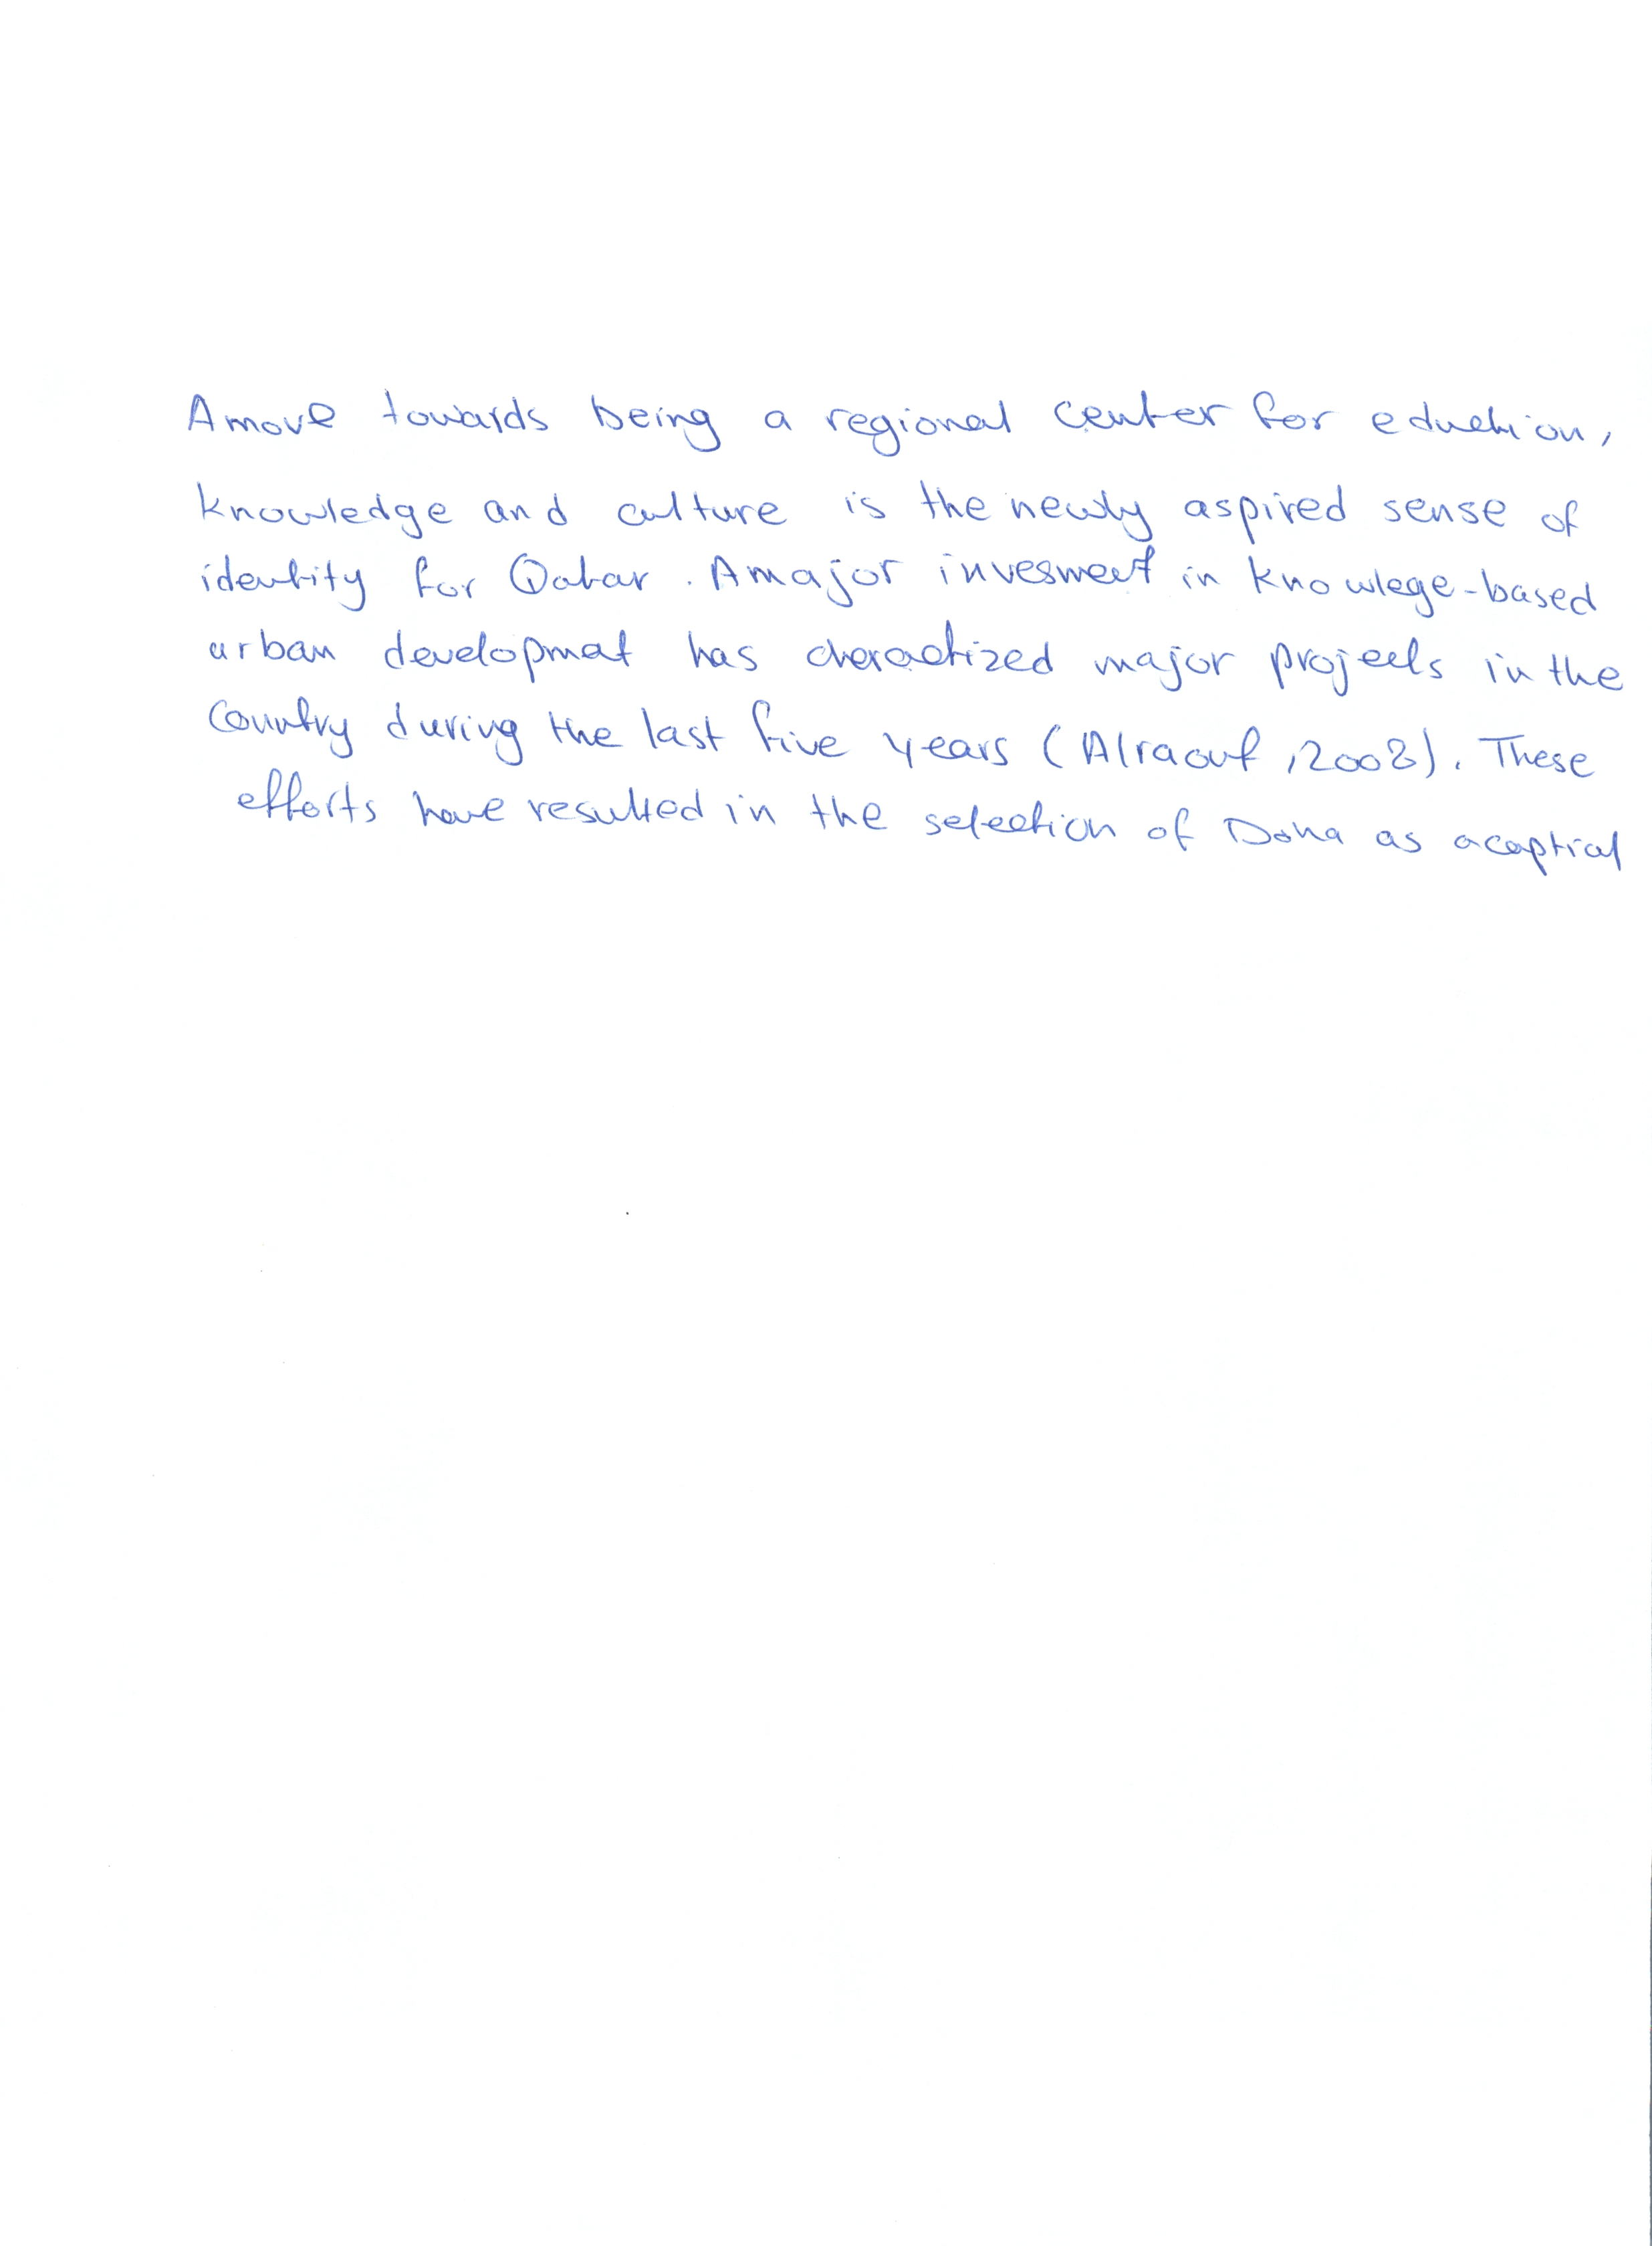 A move towards being a regional center for eduction,
knowledge and culture is the newly aspired sense of
identity for Qatar. A major invesment in knowlege-based
urban developmat has charactized major projects in the
country during the last five years (Alraouf, 2008). These
efforts have resulted in the selection of Doha as a captial